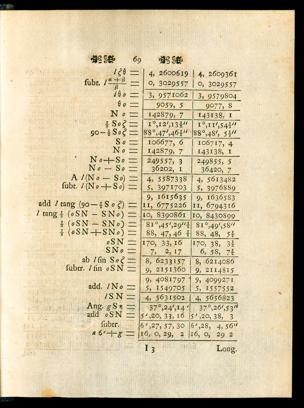 69
lζθ = 4, 2609619 | 4, 2609361
subt. l (α+β)/β = 0, 3029557 | 0, 3029557
lθo = 3, 9571062 | 3, 9579804
θo = 9059, 5 | 9077, 8
No = 142879, 7 | 143138, 1
½ Soζ = 1°,12',13½" | 1°,11',54½"
90–½ Soζ = 88°,47',46½" | 88°,48', 5½"
So = 106677, 6 | 106717, 4
No = 142879, 7 | 143138, 1
No+So = 249557, 3 | 249855, 5
No – So = 36202, 1 | 36420, 7
A l(No – So) = 4, 5587338 | 4, 5613482
subt. l(No+So) = 5, 3971703 | 5, 3976889
9, 1615635 | 9, 1636583
add l tang (90–½ Soζ) = 11, 6775226 | 11, 6794316
l tang ½ (oSN – SNo) = 10, 8390861 | 10, 8430899
½ (oSN – SNo) = 81°,45',29" | 81°,49',58"
½ (oSN + SNo) = 88, 47, 46 | 88, 48, 5½
oSN = 170, 33, 16 | 170, 38, 3½
SNo = 7, 2, 17 | 6, 58, 7½
ab l sin Soζ = 8, 6233157 | 8, 6214086
subtr. l sin oSN = 9, 2151360 | 9, 2114815
9, 4081797 | 9, 4099271
add. lNo = 5, 1549705 | 5, 1557552
lSN = 4, 5631502 | 4, 5656823
Ang. gSn = 37°,24',14" | 37°,26',53"
add oSN = 5ˢ,20, 33, 16 | 5ˢ,20, 38, 3
subtr. 6ˢ,27, 57, 30 | 6ˢ,28, 4, 56"
a 6ˢ+g = 16, 0, 29, 2 | 16, 0, 29 2
I 3 Long.